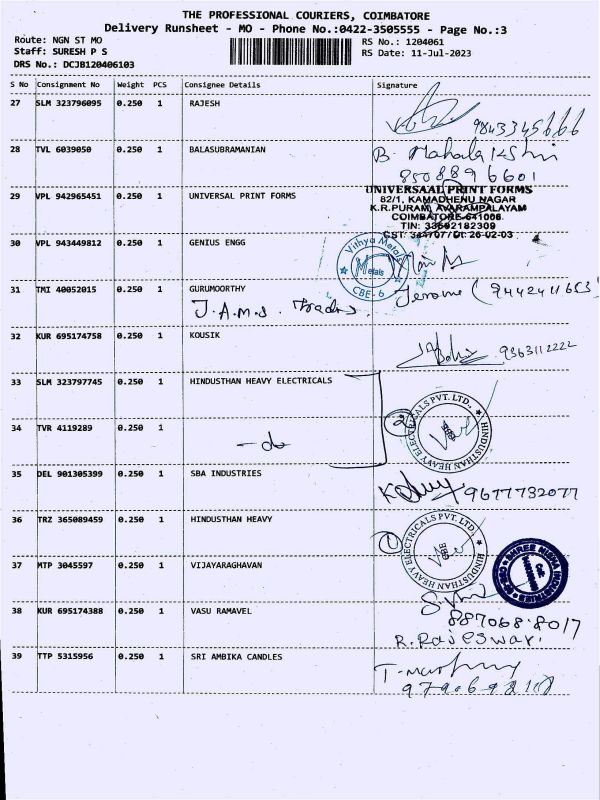 THE PROFESSIONAL COURIERS, COIMBATORE
Delivery Runsheet - MO - Phone No.:0422-3505555 - Page No.:3
Route: NGN ST MO
RS No.: 1204061
Staff: SURESH P S
RS Date: 11-Jul-2023
DRS No.: DCJB120406103
S No Consignment No Weight PCS Consignee Details Signature
27 SLM 323796095 0.250 1 RAJESH
9843345666
28 TVL 6039050 0.250 1 BALASUBRAMANIAN B. Mahalakshmi
8508896601
29 VPL 942965451 0.250 1 UNIVERSAL PRINT FORMS UNIVERSAAL PRINT FORMS
82/1, KAMADHENU NAGAR
K.R.PURAM, AVARAMPALAYAM
COIMBATORE-641006.
TIN: 33592182309
30 VPL 943449812 0.250 1 GENIUS ENGG Vithya Metals
Metals
CBE - 6
31 TMI 40052015 0.250 1 GURUMOORTHY Jerome (9442411653)
J.A.M.S. Traders
32 KUR 695174758 0.250 1 KOUSIK 9363112222
33 SLM 323797745 0.250 1 HINDUSTHAN HEAVY ELECTRICALS
34 TVR 4119289 0.250 1 - do 2 HINDUSTHAN HEAVY ELECTRICALS PVT. LTD.,
CBE
35 DEL 901305399 0.250 1 SBA INDUSTRIES 9677732077
36 TRZ 365089459 0.250 1 HINDUSTHAN HEAVY 1 HINDUSTHAN HEAVY ELECTRICALS PVT. LTD.,
CBE
37 MTP 3045597 0.250 1 VIJAYARAGHAVAN SHREE NISHA INDUSTRIES
38 KUR 695174388 0.250 1 VASU RAMAVEL 887068 8017
R. Rajeswari.
39 TTP 5315956 0.250 1 SRI AMBIKA CANDLES